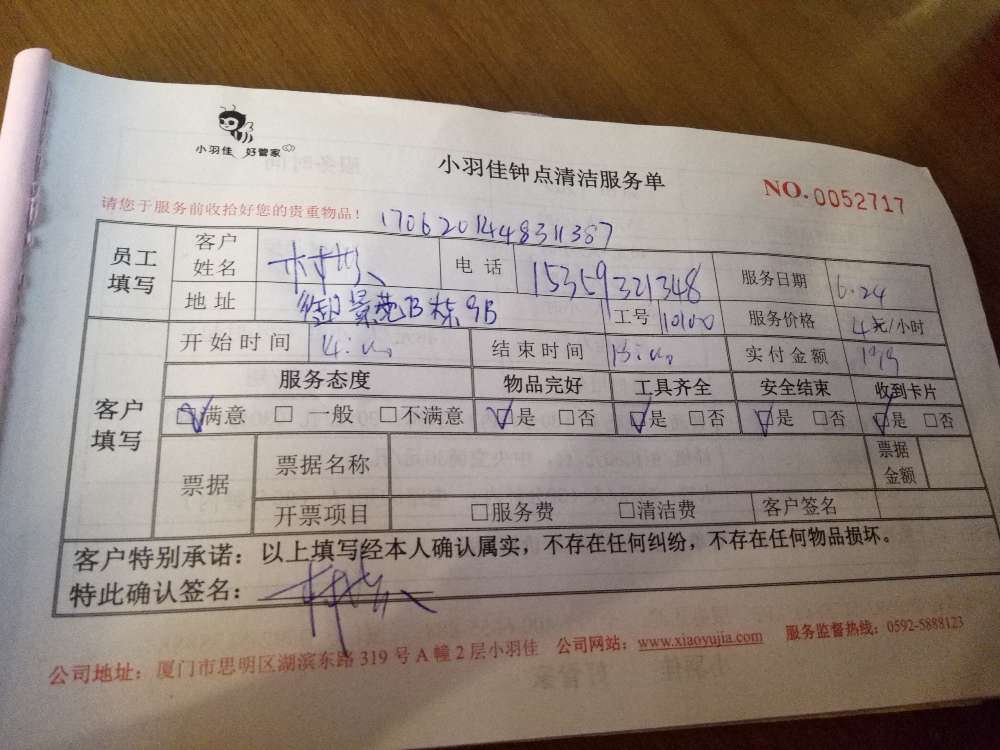 小羽佳 好管家
小羽佳钟点清洁服务单
NO.0052717
请您于服务前收拾好您的贵重物品！
1706201448311387
员工填写 客户姓名 电话 15359321348 服务日期 6.24
地址 御景苑B栋9B 工号 10100 服务价格 4元/小时
客户填写 开始时间 结束时间 实付金额
服务态度 物品完好 工具齐全 安全结束 收到卡片
☑满意 □一般 □不满意 ☑是 □否 ☑是 □否 ☑是 □否 ☑是 □否
票据 票据名称 票据金额
开票项目 □服务费 □清洁费 客户签名
客户特别承诺：以上填写经本人确认属实，不存在任何纠纷，不存在任何物品损坏。
特此确认签名：
公司地址：厦门市思明区湖滨东路319号A幢2层小羽佳 公司网站：www.xiaoyujia.com 服务监督热线：0592-5888123